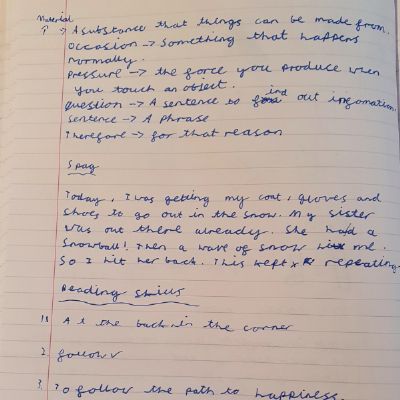 Material
? → A substance that things can be made from.
Occasion → Something that happens
normally.
Pressure → the force you produce when
you touch an object.
Question → A sentence to find out infomation.
Sentence → A phrase
Therefore → for that reason
Spag
Today, I was getting my coat, gloves and
shoes to go out in the snow. My sister
was out there already. She had a
snowball! Then a wave of snow hit me.
So I hit her back. This kept repeating
Reading Skills
1. At the back in the corner
2. follow
3. To follow the path to happiness.